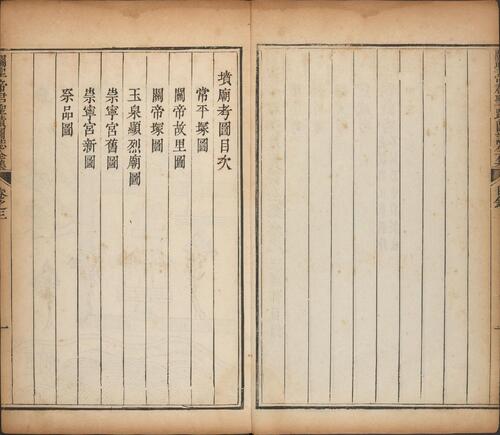 墳廟考圖目次
常平塚圖
關帝故里圖
關帝塚圖
玉泉顯烈廟圖
崇寧宮舊圖
崇寧宮新圖
祭品圖
卷之三
一